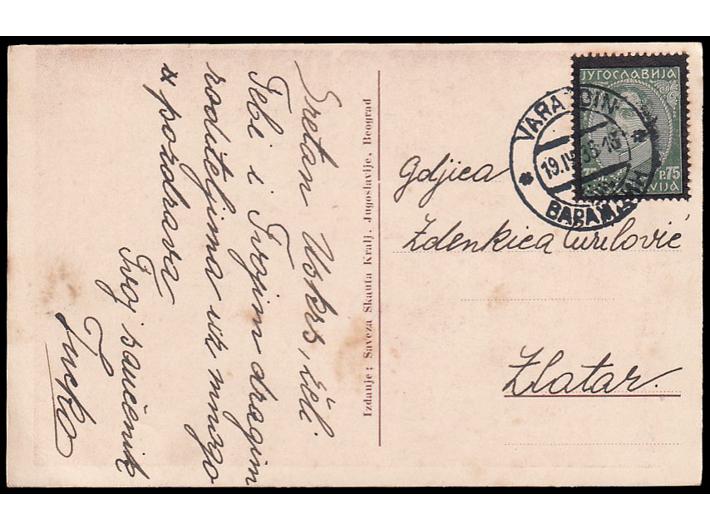 Sretan Uskrs, želi
Tebi i Tvojim dragim
roditeljima uz mnogo
pozdrava
Tvoj saučenik
Izdanje: Saveza Skauta Kralj. Jugoslavije, Beograd
ЈУГОСЛАВИЈА
P.75
VARAŽDIN
19.IV
ВАРАЖДИН
Gdjica
Zdenkica Curilović
Zlatar.